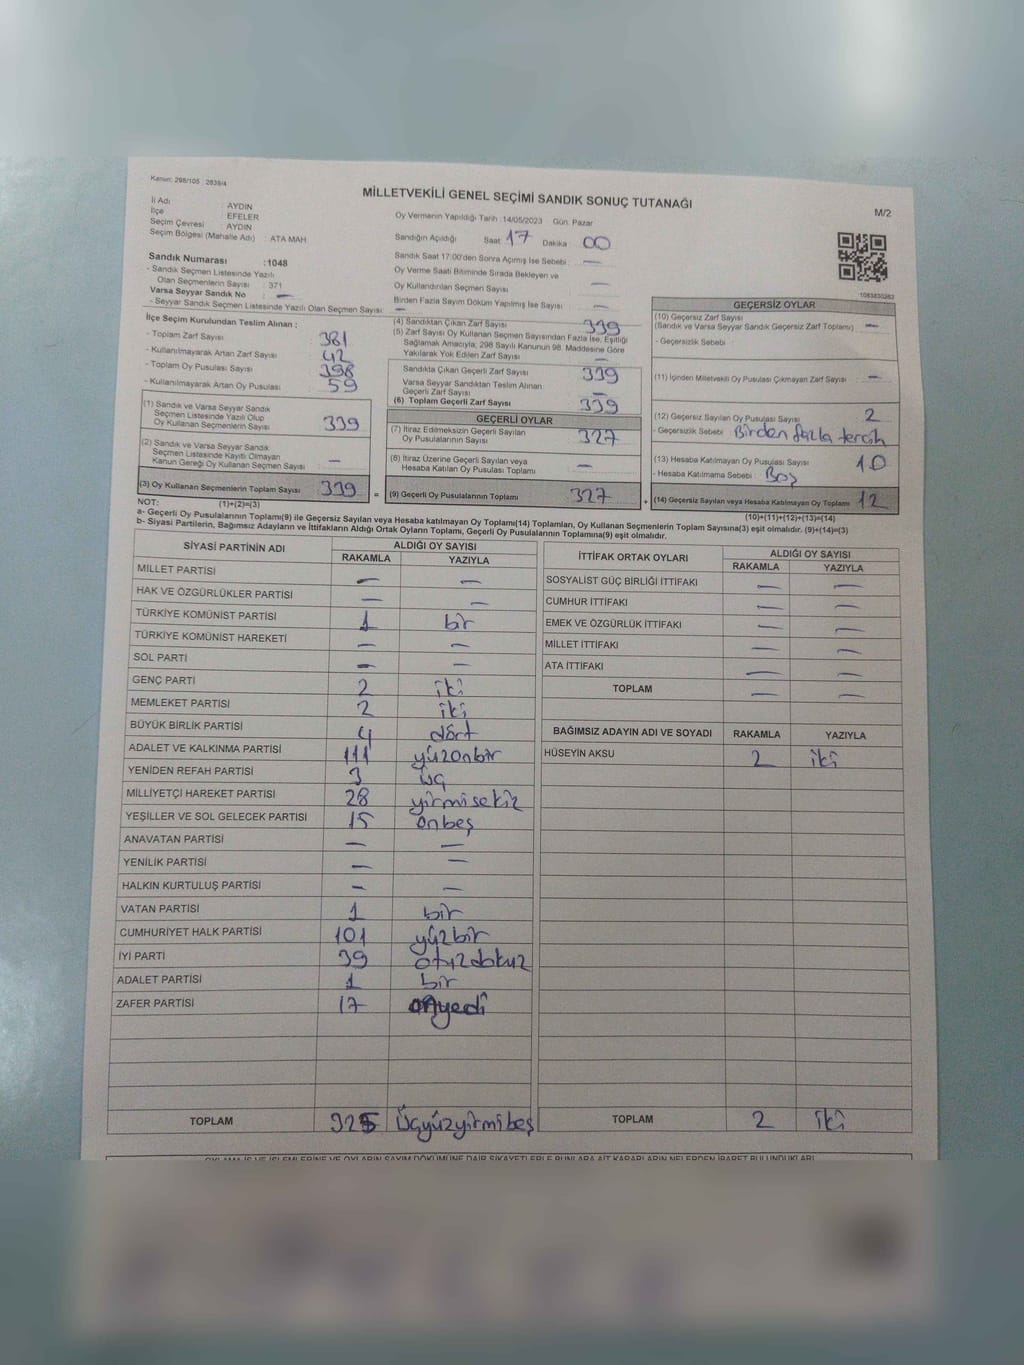 Kanun: 298/105 2839/4
MİLLETVEKİLİ GENEL SEÇİMİ SANDIK SONUÇ TUTANAĞI
M/2
İl Adı : AYDIN
İlçe : EFELER
Seçim Çevresi : AYDIN
Seçim Bölgesi (Mahalle Adı) : ATA MAH
Oy Vermenin Yapıldığı Tarih :14/05/2023 Gün: Pazar
Sandığın Açıldığı Saat 17 Dakika 00
Sandık Saat 17:00'den Sonra Açımış İse Sebebi : —
Oy Verme Saati Bitiminde Sırada Bekleyen ve
Oy Kullandırılan Seçmen Sayısı —
Birden Fazla Sayım Döküm Yapılmış İse Sayısı : —
Sandık Numarası :1048
- Sandık Seçmen Listesinde Yazılı
Olan Seçmenlerin Sayısı : 371
Varsa Seyyar Sandık No : —
- Seyyar Sandık Seçmen Listesinde Yazılı Olan Seçmen Sayısı: —
İlçe Seçim Kurulundan Teslim Alınan :
- Toplam Zarf Sayısı 381
- Kullanılmayarak Artan Zarf Sayısı 42
- Toplam Oy Pusulası Sayısı 398
- Kullanılmayarak Artan Oy Pusulası 59
(1) Sandık ve Varsa Seyyar Sandık
Seçmen Listesinde Yazılı Olup
Oy Kullanan Seçmenlerin Sayısı 339
(2) Sandık ve Varsa Seyyar Sandık
Seçmen Listesinde Kayıtlı Olmayan
Kanun Gereği Oy Kullanan Seçmen Sayısı —
(3) Oy Kullanan Seçmenlerin Toplam Sayısı 339
(1)+(2)=(3)
(4) Sandıktan Çıkan Zarf Sayısı 339
(5) Zarf Sayısı Oy Kullanan Seçmen Sayısından Fazla İse, Eşitliği
Sağlamak Amacıyla, 298 Sayılı Kanunun 98. Maddesine Göre
Yakılarak Yok Edilen Zarf Sayısı —
Sandıkta Çıkan Geçerli Zarf Sayısı 339
Varsa Seyyar Sandıktan Teslim Alınan
Geçerli Zarf Sayısı —
(6) Toplam Geçerli Zarf Sayısı 339
GEÇERLİ OYLAR
(7) İtiraz Edilmeksizin Geçerli Sayılan
Oy Pusulalarının Sayısı 327
(8) İtiraz Üzerine Geçerli Sayılan veya
Hesaba Katılan Oy Pusulası Toplamı —
= (9) Geçerli Oy Pusulalarının Toplamı 327
1083830363
GEÇERSİZ OYLAR
(10) Geçersiz Zarf Sayısı
(Sandık ve Varsa Seyyar Sandık Geçersiz Zarf Toplamı) —
- Geçersizlik Sebebi
(11) İçinden Milletvekili Oy Pusulası Çıkmayan Zarf Sayısı —
(12) Geçersiz Sayılan Oy Pusulası Sayısı 2
- Geçersizlik Sebebi : Birden fazla tercih
(13) Hesaba Katılmayan Oy Pusulası Sayısı 10
- Hesaba Katılmama Sebebi : Boş
+ (14) Geçersiz Sayılan veya Hesaba Katılmayan Oy Toplamı 12
(10)+(11)+(12)+(13)=(14)
NOT:
a- Geçerli Oy Pusulalarının Toplamı(9) ile Geçersiz Sayılan veya Hesaba katılmayan Oy Toplamı(14) Toplamları, Oy Kullanan Seçmenlerin Toplam Sayısına(3) eşit olmalıdır. (9)+(14)=(3)
b- Siyasi Partilerin, Bağımsız Adayların ve İttifakların Aldığı Ortak Oyların Toplamı, Geçerli Oy Pusulalarının Toplamına(9) eşit olmalıdır.
SİYASİ PARTİNİN ADI ALDIĞI OY SAYISI
RAKAMLA YAZIYLA
MİLLET PARTİSİ — —
HAK VE ÖZGÜRLÜKLER PARTİSİ — —
TÜRKİYE KOMÜNİST PARTİSİ 1 bir
TÜRKİYE KOMÜNİST HAREKETİ — —
SOL PARTİ — —
GENÇ PARTİ 2 iki
MEMLEKET PARTİSİ 2 iki
BÜYÜK BİRLİK PARTİSİ 4 dört
ADALET VE KALKINMA PARTİSİ 111 yüzonbir
YENİDEN REFAH PARTİSİ 3 üç
MİLLİYETÇİ HAREKET PARTİSİ 28 yirmisekiz
YEŞİLLER VE SOL GELECEK PARTİSİ 15 onbeş
ANAVATAN PARTİSİ — —
YENİLİK PARTİSİ — —
HALKIN KURTULUŞ PARTİSİ — —
VATAN PARTİSİ 1 bir
CUMHURİYET HALK PARTİSİ 101 yüzbir
İYİ PARTİ 39 otuzdokuz
ADALET PARTİSİ 1 bir
ZAFER PARTİSİ 17 onyedi
TOPLAM 325 üçyüzyirmibeş
İTTİFAK ORTAK OYLARI ALDIĞI OY SAYISI
RAKAMLA YAZIYLA
SOSYALİST GÜÇ BİRLİĞİ İTTİFAKI — —
CUMHUR İTTİFAKI — —
EMEK VE ÖZGÜRLÜK İTTİFAKI — —
MİLLET İTTİFAKI — —
ATA İTTİFAKI — —
TOPLAM — —
BAĞIMSIZ ADAYIN ADI VE SOYADI RAKAMLA YAZIYLA
HÜSEYİN AKSU 2 iki
TOPLAM 2 iki